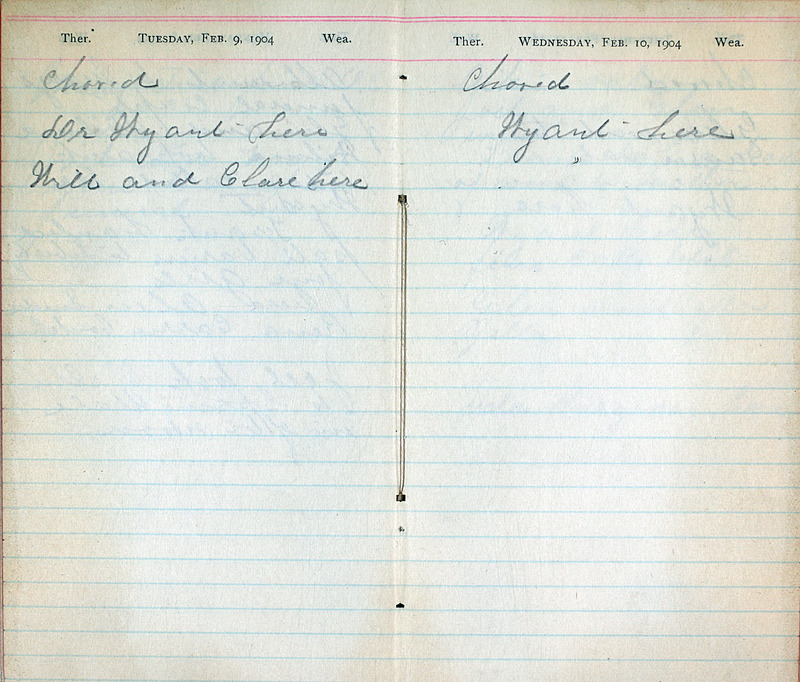 Ther. TUESDAY, FEB. 9, 1904 Wea.
Chored
Dr Wyant here
Will and Clare here
Ther. WEDNESDAY, FEB. 10, 1904 Wea.
Chored
Wyant here
"